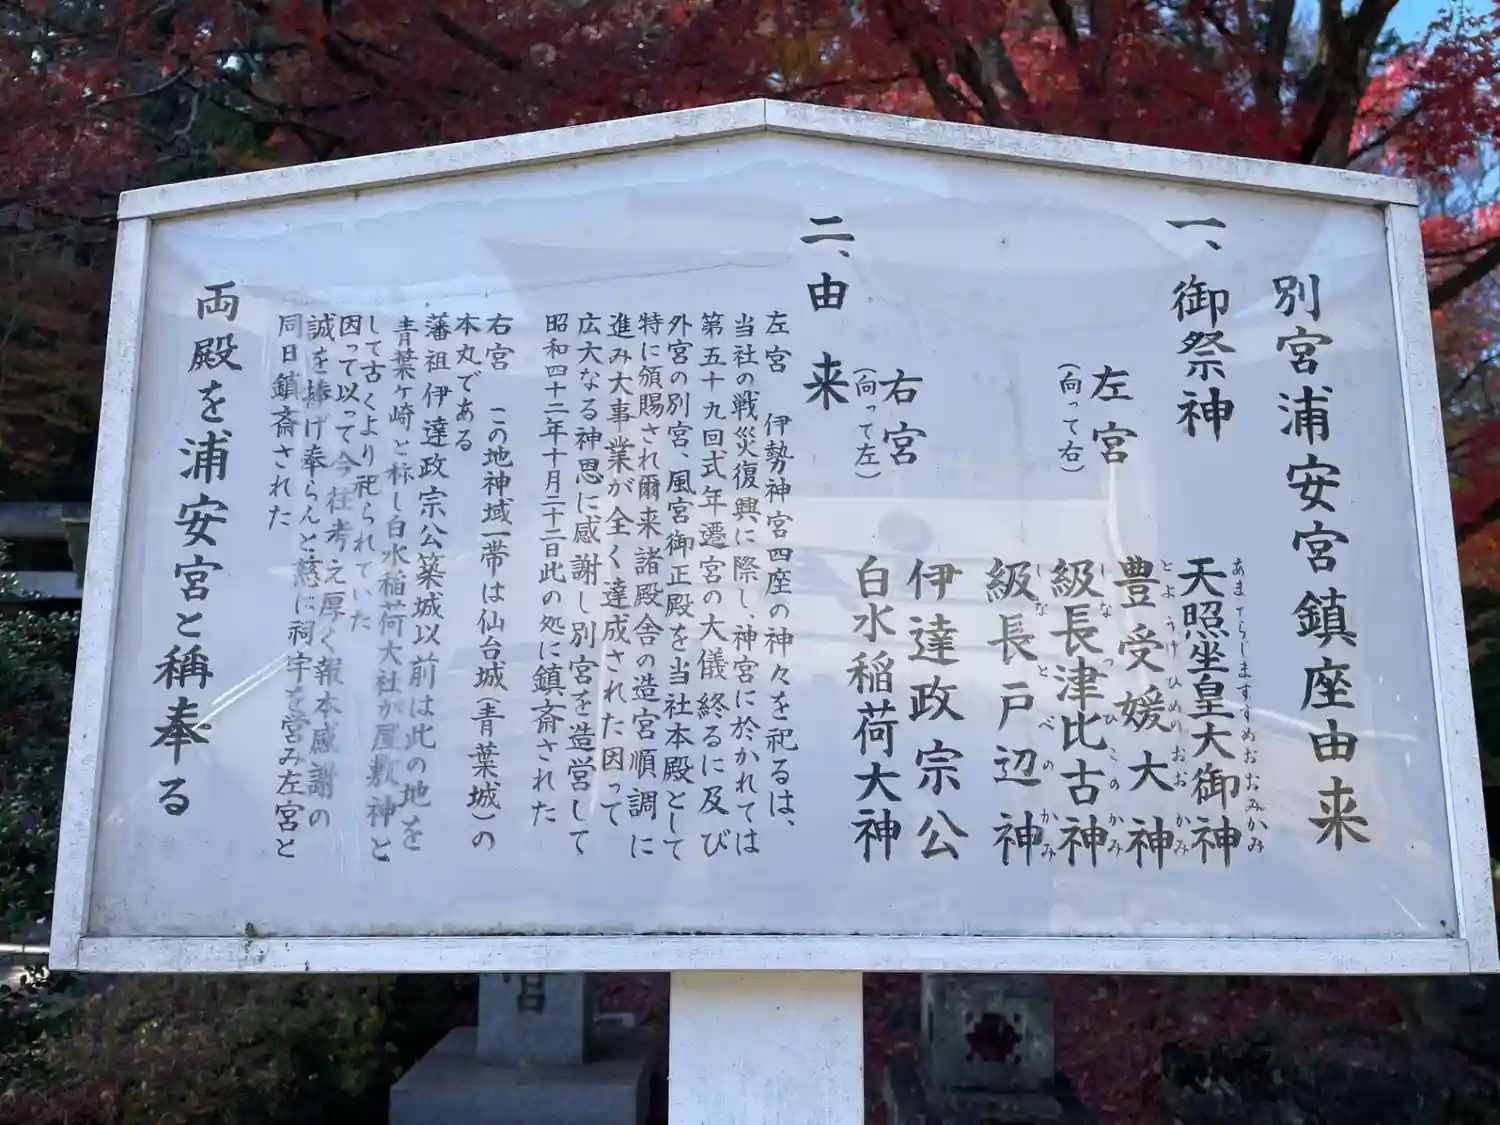 別宮浦安宮鎮座由来
一、御祭神
左宮
(向って右)
天照坐皇大御神
あまてらしますすめおおみかみ
豊受媛大神
とようけひめのおおかみ
級長津比古神
しなつひこのかみ
級長戸辺神
しなとべのかみ
右宮
(向って左)
伊達政宗公
白水稲荷大神
二、由来
左宮 伊勢神宮四座の神々を祀るは、
当社の戦災復興に際し、神宮に於かれては
第五十九回式年遷宮の大儀終るに及び
外宮の別宮、風宮御正殿を当社本殿として
特に頒賜され爾来諸殿舎の造宮順調に
進み大事業が全く達成された因って
広大なる神恩に感謝し別宮を造営して
昭和四十二年十月二十二日此の処に鎮斎された
右宮 この地神域一帯は仙台城(青葉城)の
本丸である
藩祖伊達政宗公築城以前は此の地を
青葉ヶ崎と称し白水稲荷大社が屋敷神と
して古くより祀られていた
因って以って今往考え厚く報本感謝の
誠を捧げ奉らんと慈に祠宇を営み左宮と
同日鎮斎された
両殿を浦安宮と稱奉る
宮